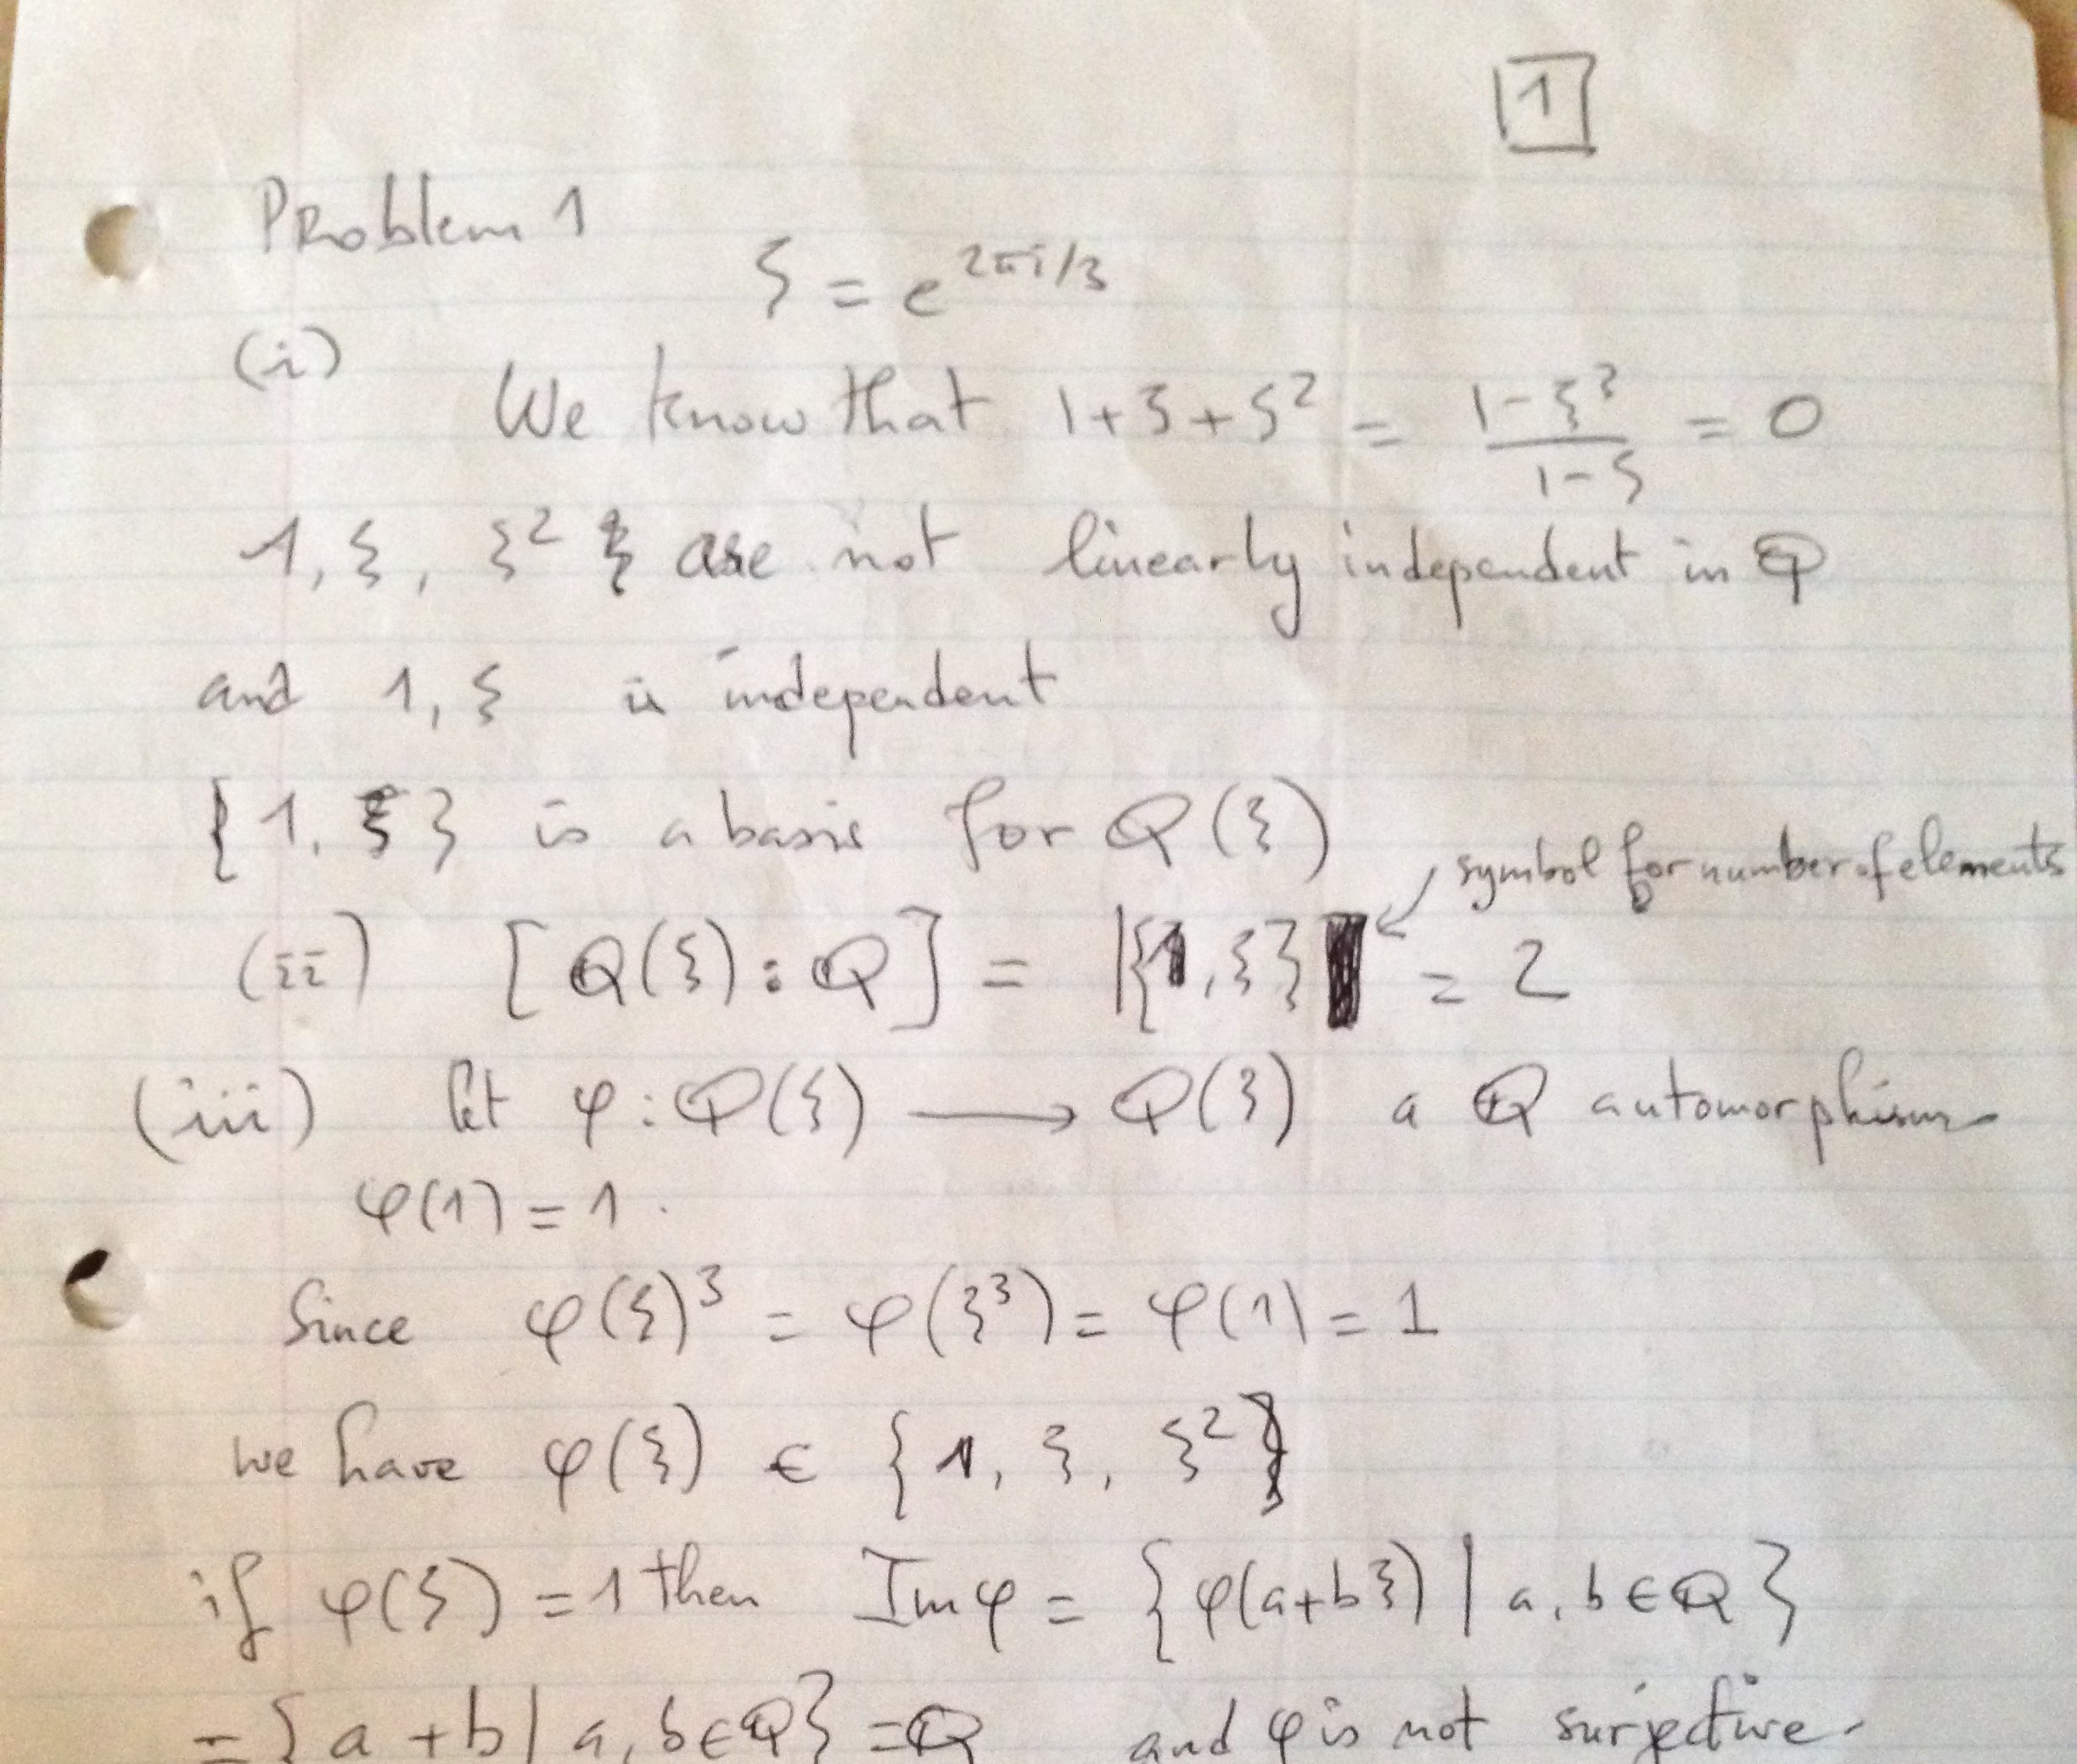 1
Problem 1
ξ = e^{2πi/3}
(i) We know that 1+ξ+ξ² = (1-ξ³)/(1-ξ) = 0
1, ξ, ξ² are not linearly independent in ℚ
and 1, ξ is independent
{1, ξ} is a basis for ℚ(ξ)
symbol for number of elements
(ii) [ℚ(ξ) : ℚ] = |{1, ξ}| = 2
(iii) let φ : ℚ(ξ) ⟶ ℚ(ξ) a ℚ automorphism
φ(1) = 1.
Since φ(ξ)³ = φ(ξ³) = φ(1) = 1
we have φ(ξ) ∈ {1, ξ, ξ²}
if φ(ξ) = 1 then Im φ = {φ(a+bξ) | a, b ∈ ℚ}
= {a + b | a, b ∈ ℚ} = ℚ and φ is not surjective.